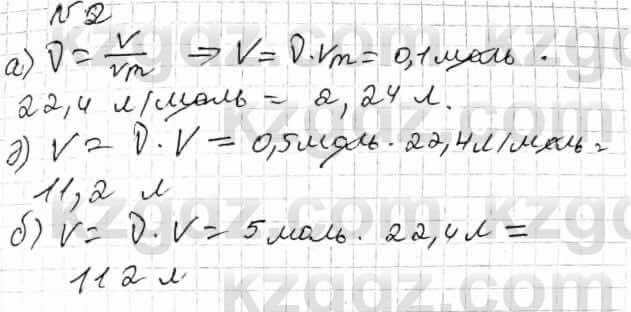 №2
а) D = V/Vm ⇒ V = D·Vm = 0,1 моль ·
22,4 л/моль = 2,24 л.
д) V = D·V = 0,5 моль · 22,4 л/моль =
11,2 л
б) V = D·V = 5 моль · 22,4 л =
112 л
kzgdz.com